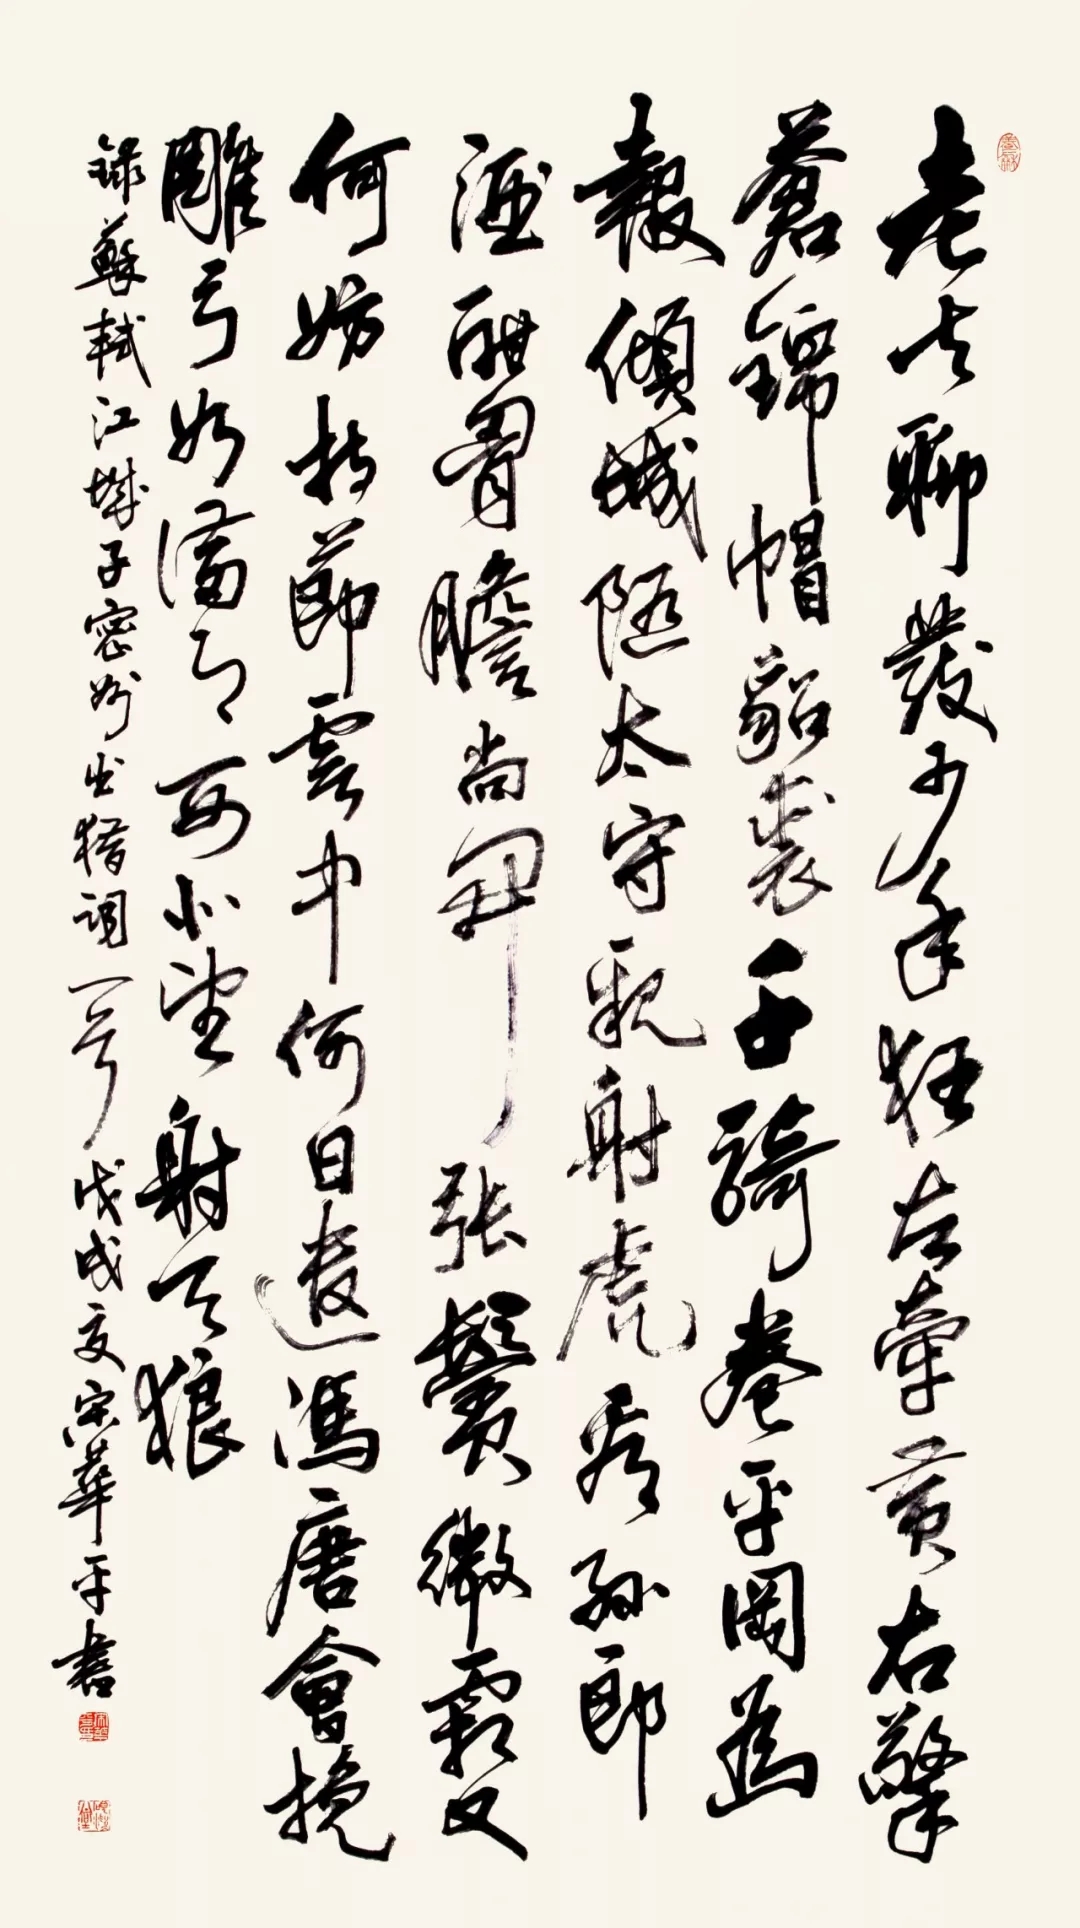 老夫聊發少年狂左牽黃右擎
蒼錦帽貂裘千騎卷平岡為
報傾城隨太守親射虎看孫郎
酒酣胷膽尚開張鬢微霜又
何妨持節雲中何日遣馮唐會挽
雕弓如滿月西北望射天狼
錄蘇軾江城子密州出獵詞一首戊戌夏宋華平書